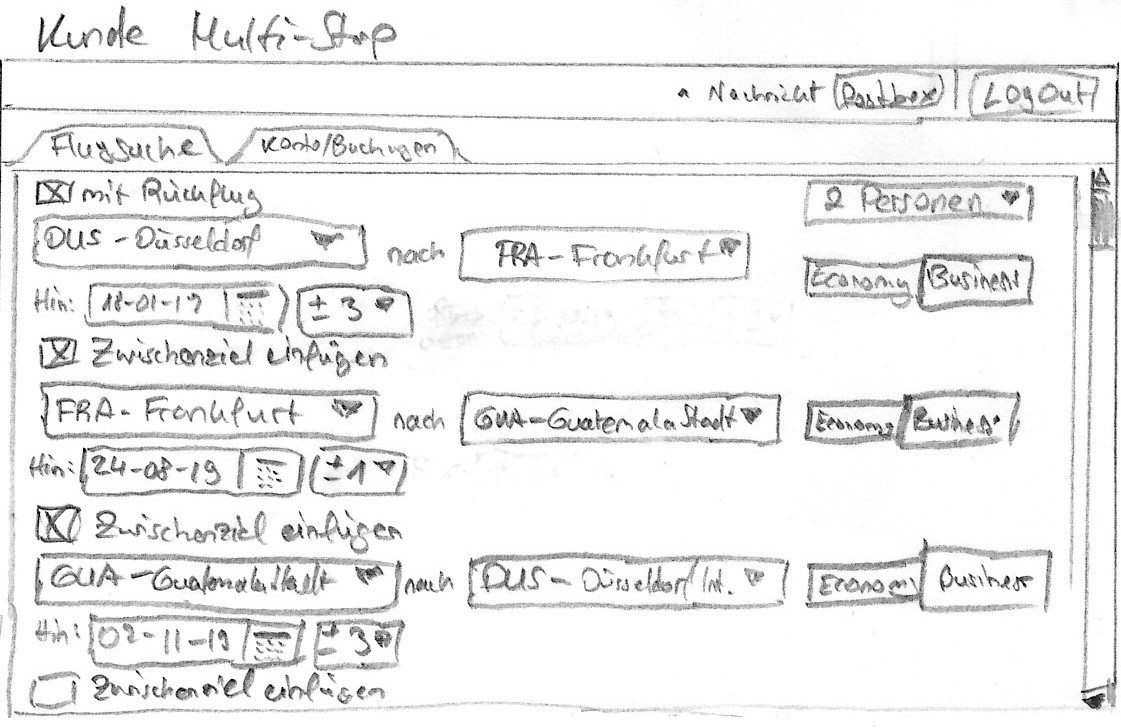 Kunde Multi-Stop
Nachricht Postbox LogOut
Flugsuche Konto/Buchungen
mit Rückflug 2 Personen
DUS - Düsseldorf nach FRA - Frankfurt Economy Business
Hin: 18-01-19 ± 3
Zwischenziel einfügen
FRA - Frankfurt nach GUA - Guatemala Stadt Economy Business
Hin: 24-08-19 ± 1
Zwischenziel einfügen
GUA - Guatemala Stadt nach DUS - Düsseldorf Int. Economy Business
Hin: -11-19 ± 3
Zwischenziel einfügen